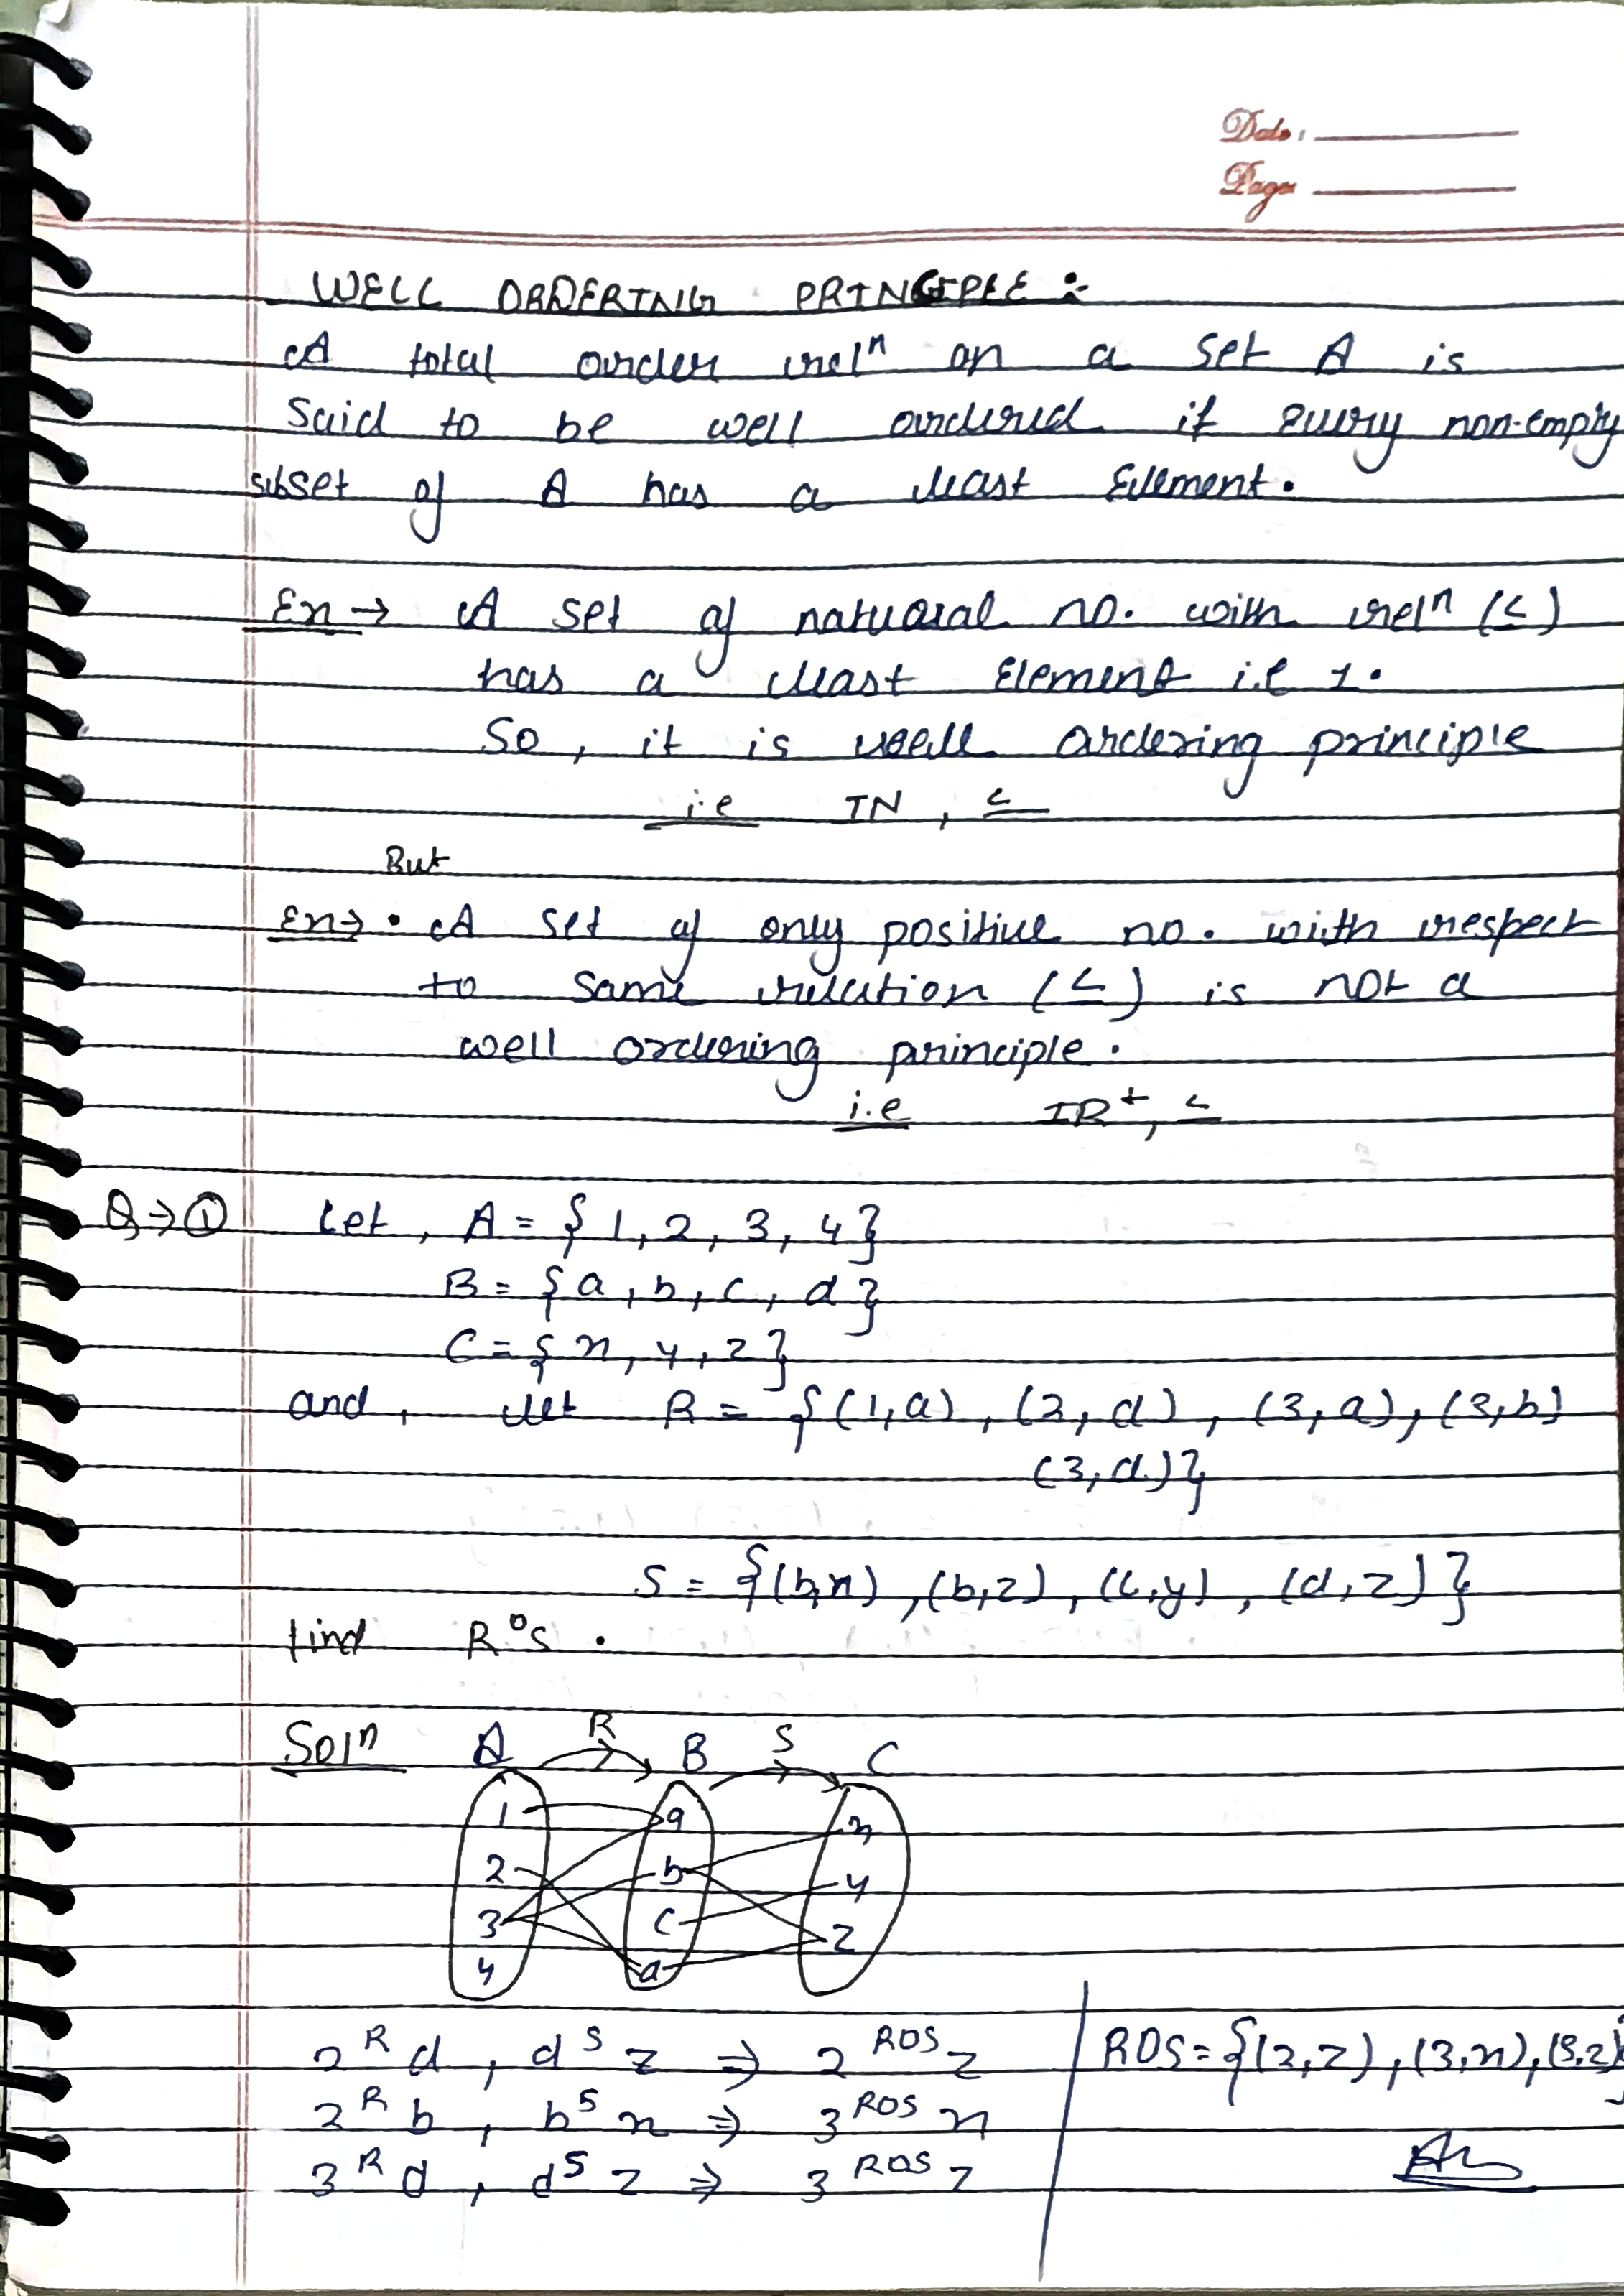 Date:
Page
WELL ORDERING PRINCIPLE :-
A total order relⁿ on a set A is
Said to be well ordered if every non-empty
subset of A has a least Element.
Ex → A set of natural no. with relⁿ (≤)
has a least Element i.e 1.
So, it is well ordering principle
i.e IN, ≤
But
Ex → • A set of only positive no. with respect
to same relation (≤) is not a
well ordering principle.
i.e IR⁺, ≤
Q→① Let, A = {1, 2, 3, 4}
B = {a, b, c, d}
C = {x, y, z}
and, let R = {(1,a), (2,d), (3,a), (3,b)
(3,d)}
S = {(b,x), (b,z), (c,y), (d,z)}
find R°S.
Solⁿ A R B S C
1 a x
2 b y
3 c z
4 d
2 ᴿ d, d ˢ z ⇒ 2 ᴿᴼˢ z
2 ᴿ b, b ˢ x ⇒ 3 ᴿᴼˢ x
3 ᴿ d, d ˢ z ⇒ 3 ᴿᴼˢ z
ROS = {(2,z), (3,x), (3,z)}
Ans